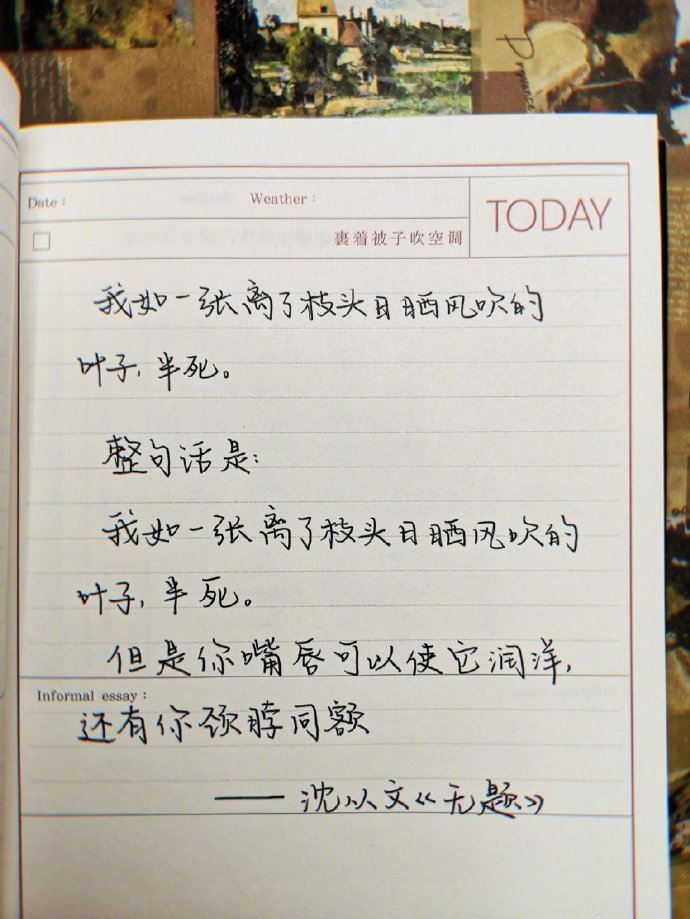 Provence
Date：
Weather：
TODAY
裹着被子吹空调
我如一张离了枝头日晒风吹的
叶子,半死。
整句话是:
我如一张离了枝头日晒风吹的
叶子,半死。
但是你嘴唇可以使它润泽,
Informal essay：
还有你颈脖同额
——沈从文《无题》